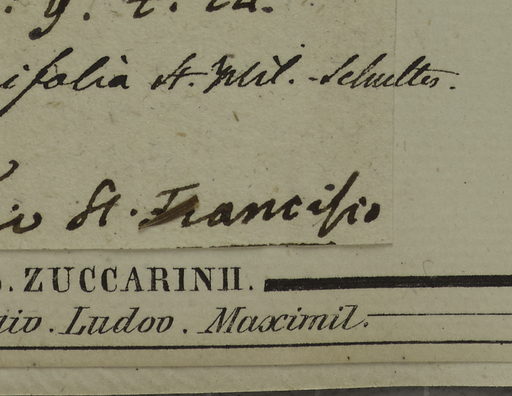 ifolia St. Hil. Schultes.
St. Francisco
ZUCCARINII.
Ludov. Maximil.